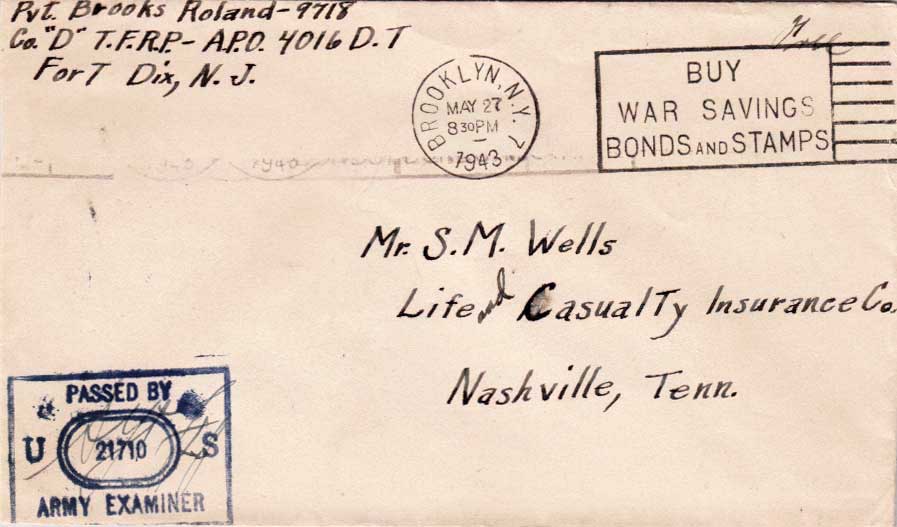 Pvt. Brooks Roland-9718
Co. "D" T.F.R.P.- A.P.O. 4016 D.T
Fort Dix, N. J.
Free
BROOKLYN, N.Y. 7
MAY 27
830PM
1943
BUY
WAR SAVINGS
BONDS AND STAMPS
1943
Mr. S.M. Wells
Life and Casualty Insurance Co.
Nashville, Tenn.
PASSED BY
U 21710 S
ARMY EXAMINER